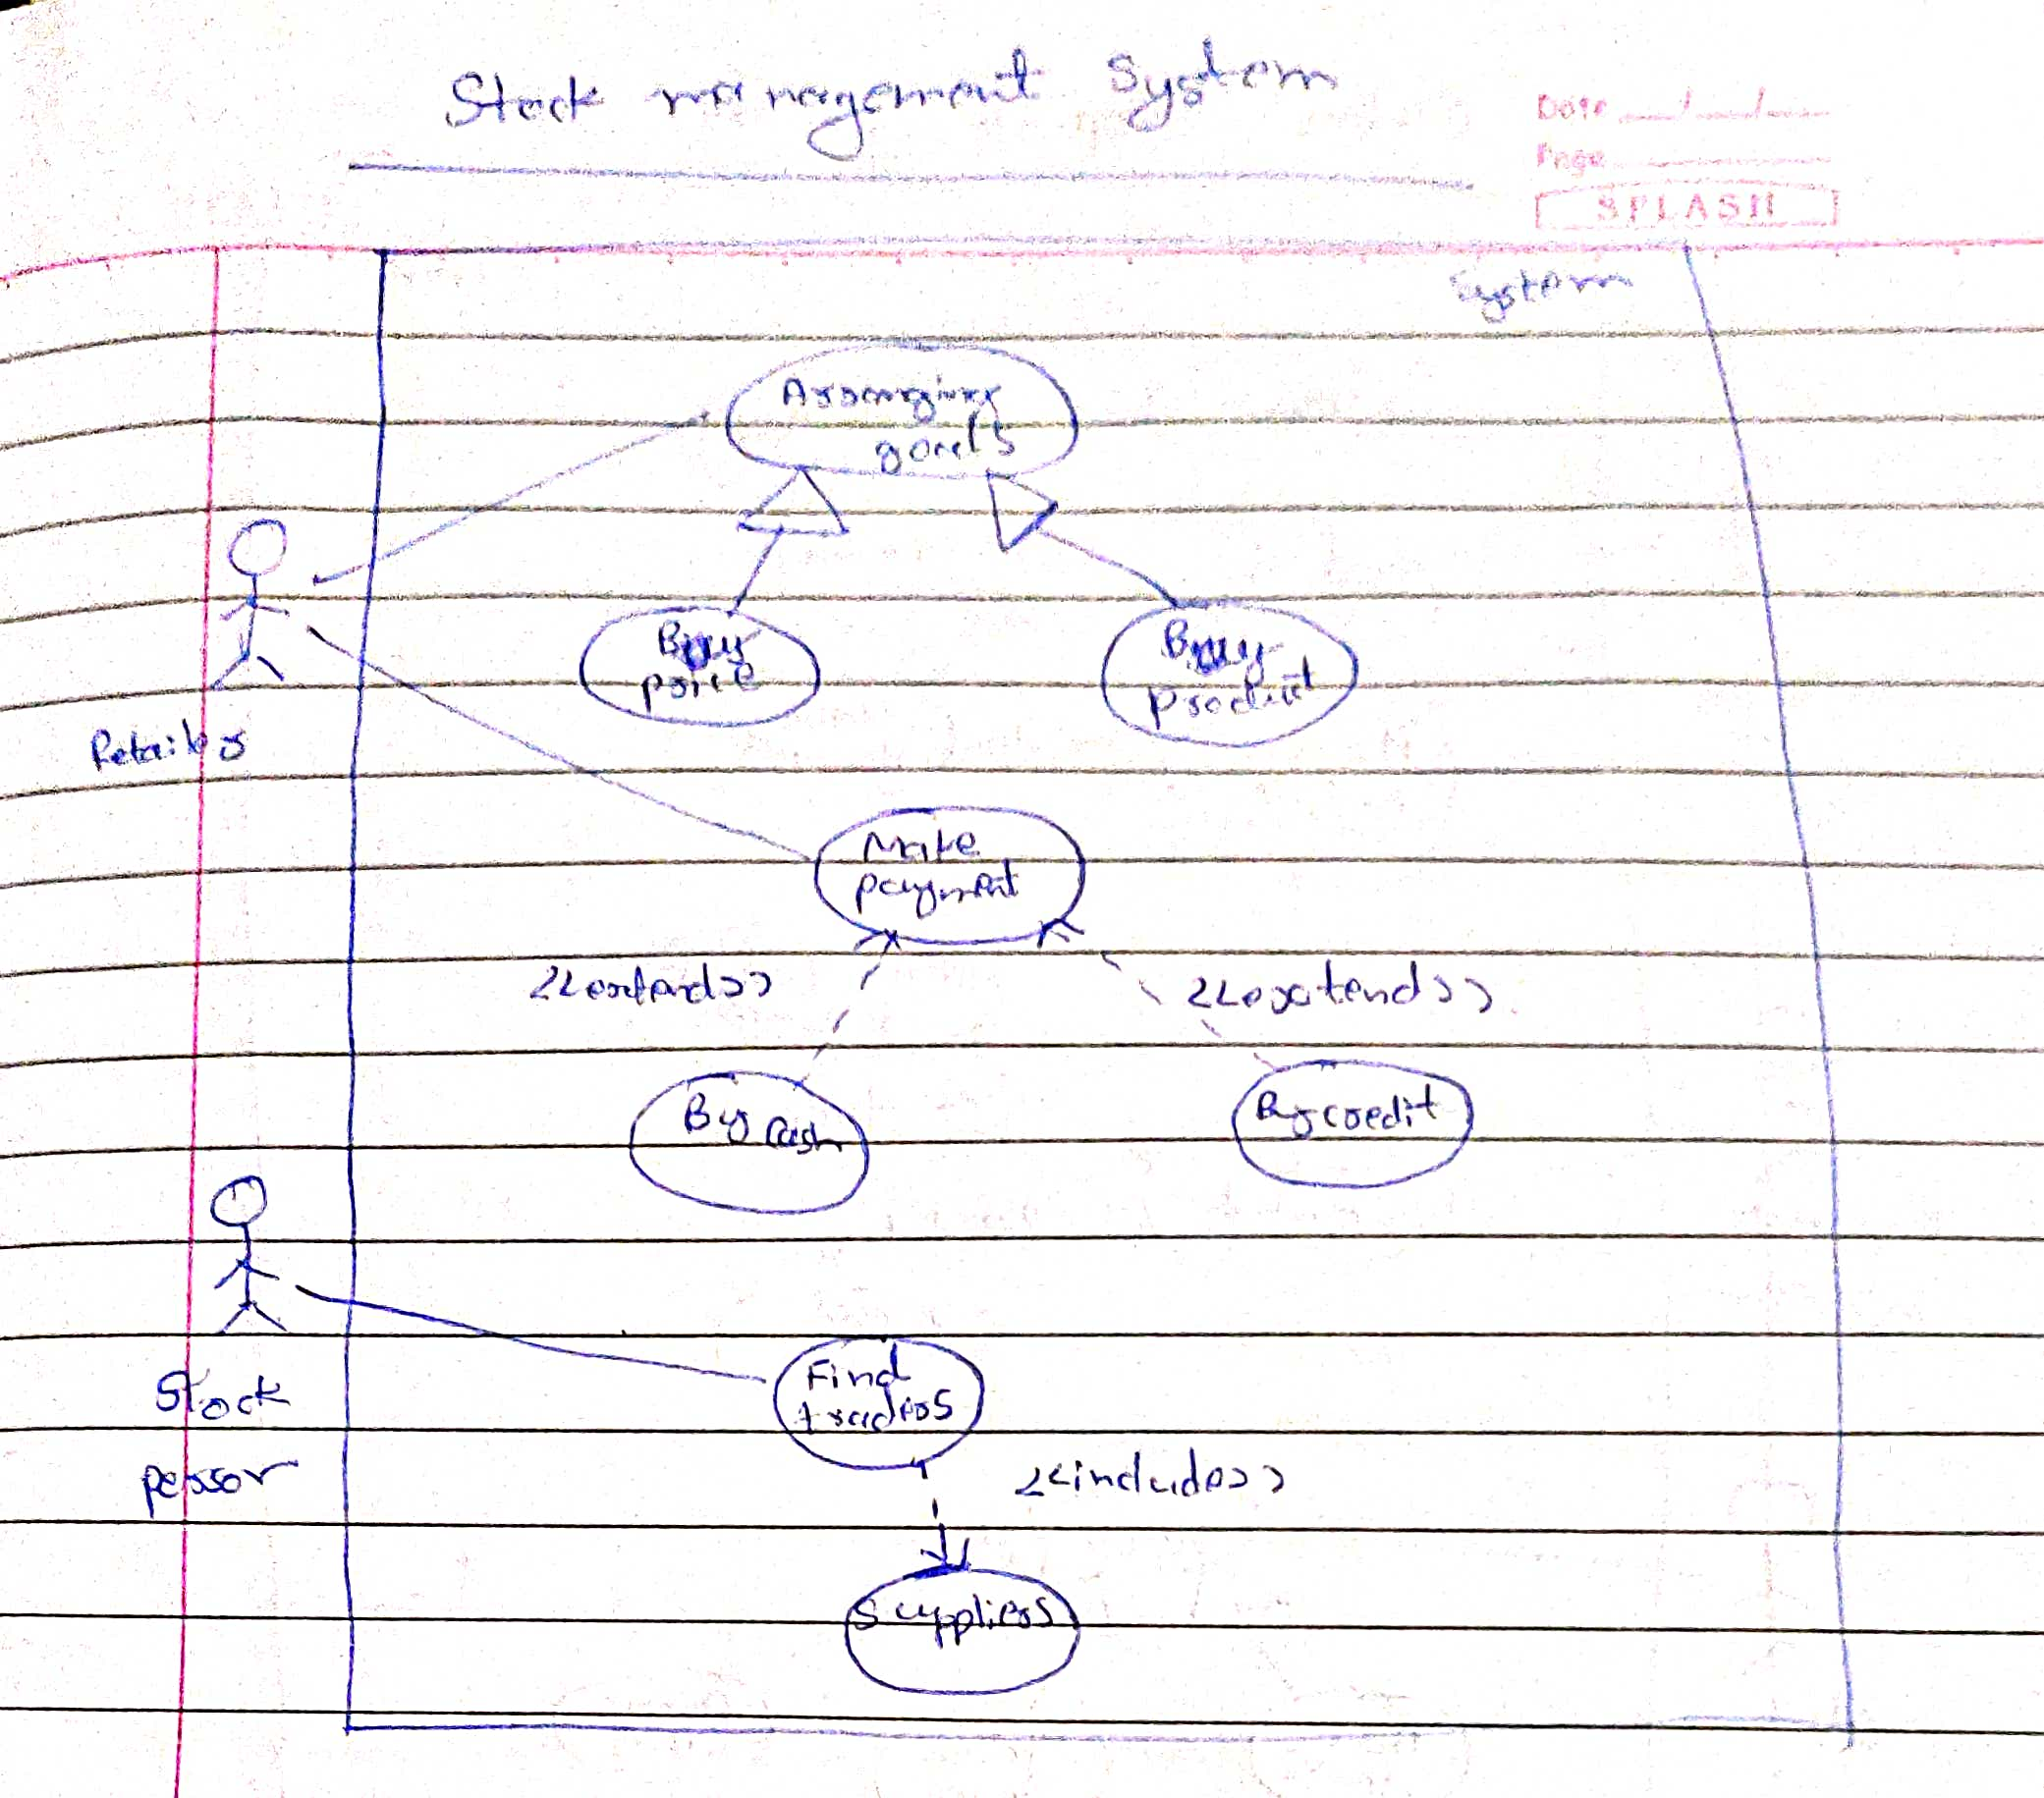 Stock management System
Date
Page
SPLASH
System
Arranging
goods
By
price
By
product
Retailer
Make
payment
<<extend>>
<<extend>>
By cash
By credit
Find
traders
Stock
person
<<include>>
Suppliers